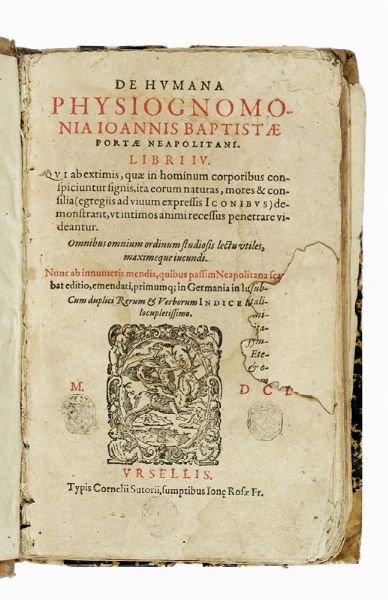 DE HVMANA
PHYSIOGNOMO-
NIA IOANNIS BAPTISTÆ
PORTÆ NEAPOLITANI.
LIBRI IV.
QVI ab extimis, quæ in hominum corporibus con-
spiciuntur signis, ita eorum naturas, mores & con-
silia (egregiis ad viuum expressis ICONIBVS) de-
monstrant, vt intimos animi recessus penetrare vi-
deantur.
Omnibus omnium ordinum studiosis lectu vtiles,
maximeque iucundi.
Nunc ab innumeris mendis, quibus passim Neapolitana sca
bat editio, emendati, primumq; in Germania in lu
Cum duplici Rerum & Verborum INDICE
locupletissimo.
M. DC I.
VRSELLIS,
Typis Cornelii Sutorii, sumptibus Ionę Rosæ Fr.